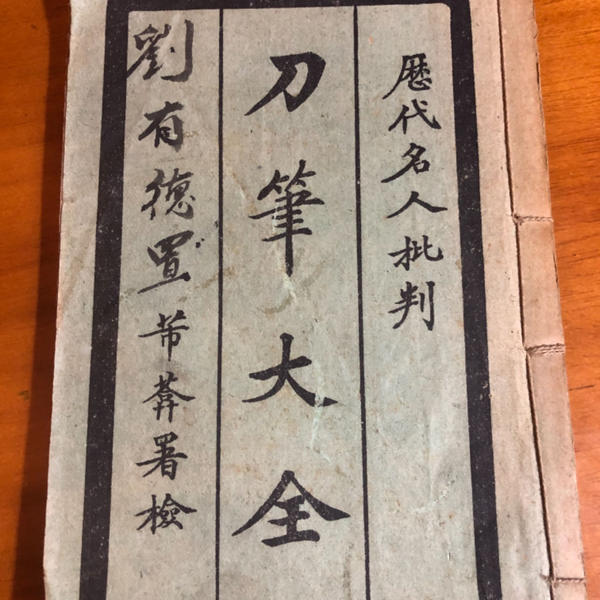 歷代名人批判
刀筆大全
劉有德置
署檢